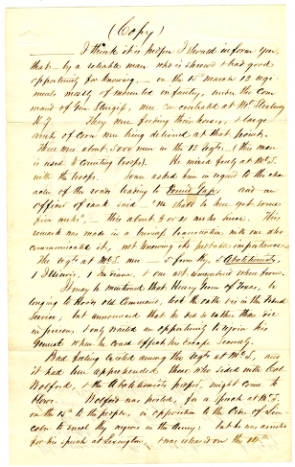 (Copy)
I think it is proper I should inform you,
that - by a reliable man who is shrewd & had good
opportunity for knowing, - on the 15th March 12 regi-
ments mostly of mounted infantry, under the com-
mand of Gen Sturgis, were concentrated at Mt Sterling
K.Y. They were footing their horses, & large
lots of corn were being delivered at that point.
There were about 5.000 men in the 12 Regts. (this man
is used to counting troops). He mixed freely at Mt S.
with the troops. was asked him in regard to the char-
acter of the roads leading to Pound Gap, and an
officer of rank said "We shall be here yet some
five weeks". This about 9 or 21 weeks since. This
remark was made in a
communicated it, not knowing the probable importance.
The Regts at Mt S. were - 5 from Ky, 5 Abolitionists
1 Illinois, 1 Indiana, & one not
It may be mentioned that Henry from Texas, be-
longing to Hoods old Command, took the oath & is in the Federal
Service, but announced that he did so rather than die
in prison, & only waited an opportunity to rejoin his
General when he could effect his escape securely.
Bad feeling existed among the Regts at Mt S, and
it had been apprehended those who sided with Col
Wolford, & the Abolitionists proper, might come to
blows. Wolford was posted, for a speech at Mt S.
on the 15th to the people, in opposition to the Order of Lin-
coln to enroll the negroes in the Army: but he was arrested
for his speech at Lexington, & was released on the